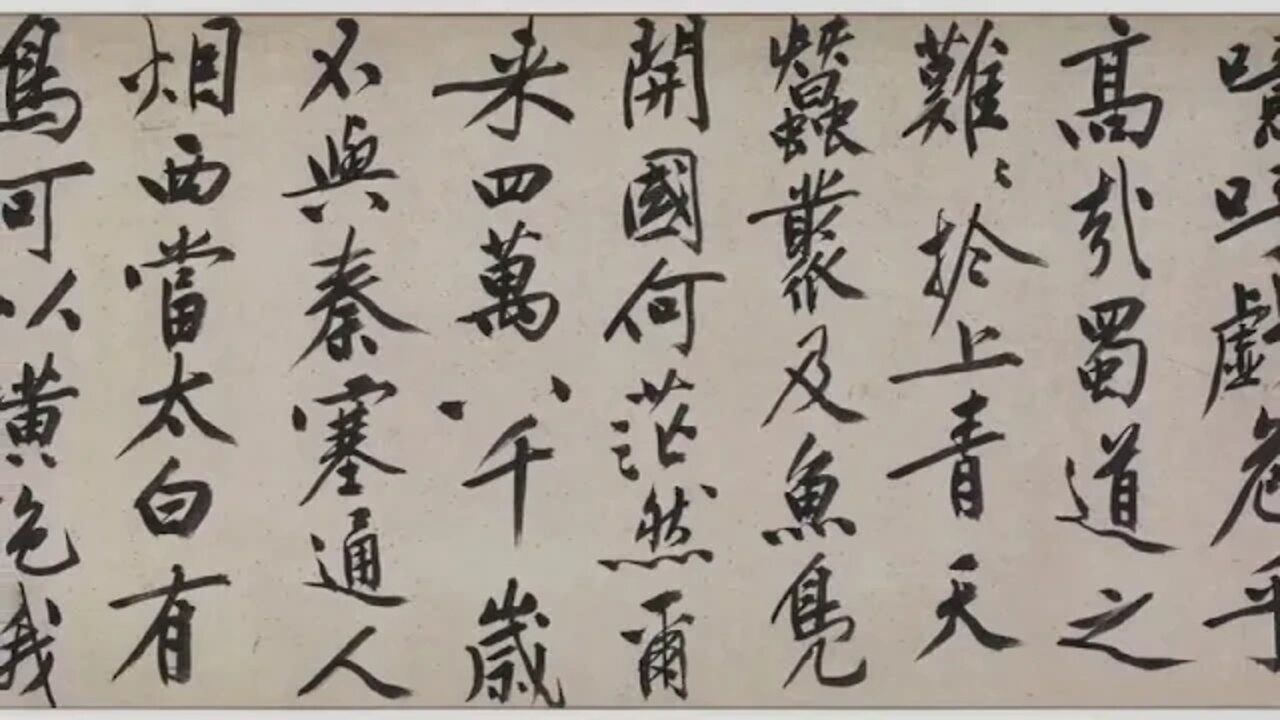 噫吁戲危乎
高哉蜀道之
難〻於上青天
蠶叢及魚鳧
開國何茫然爾
来四萬八千歲
不與秦塞通人
烟西當太白有
鳥可以